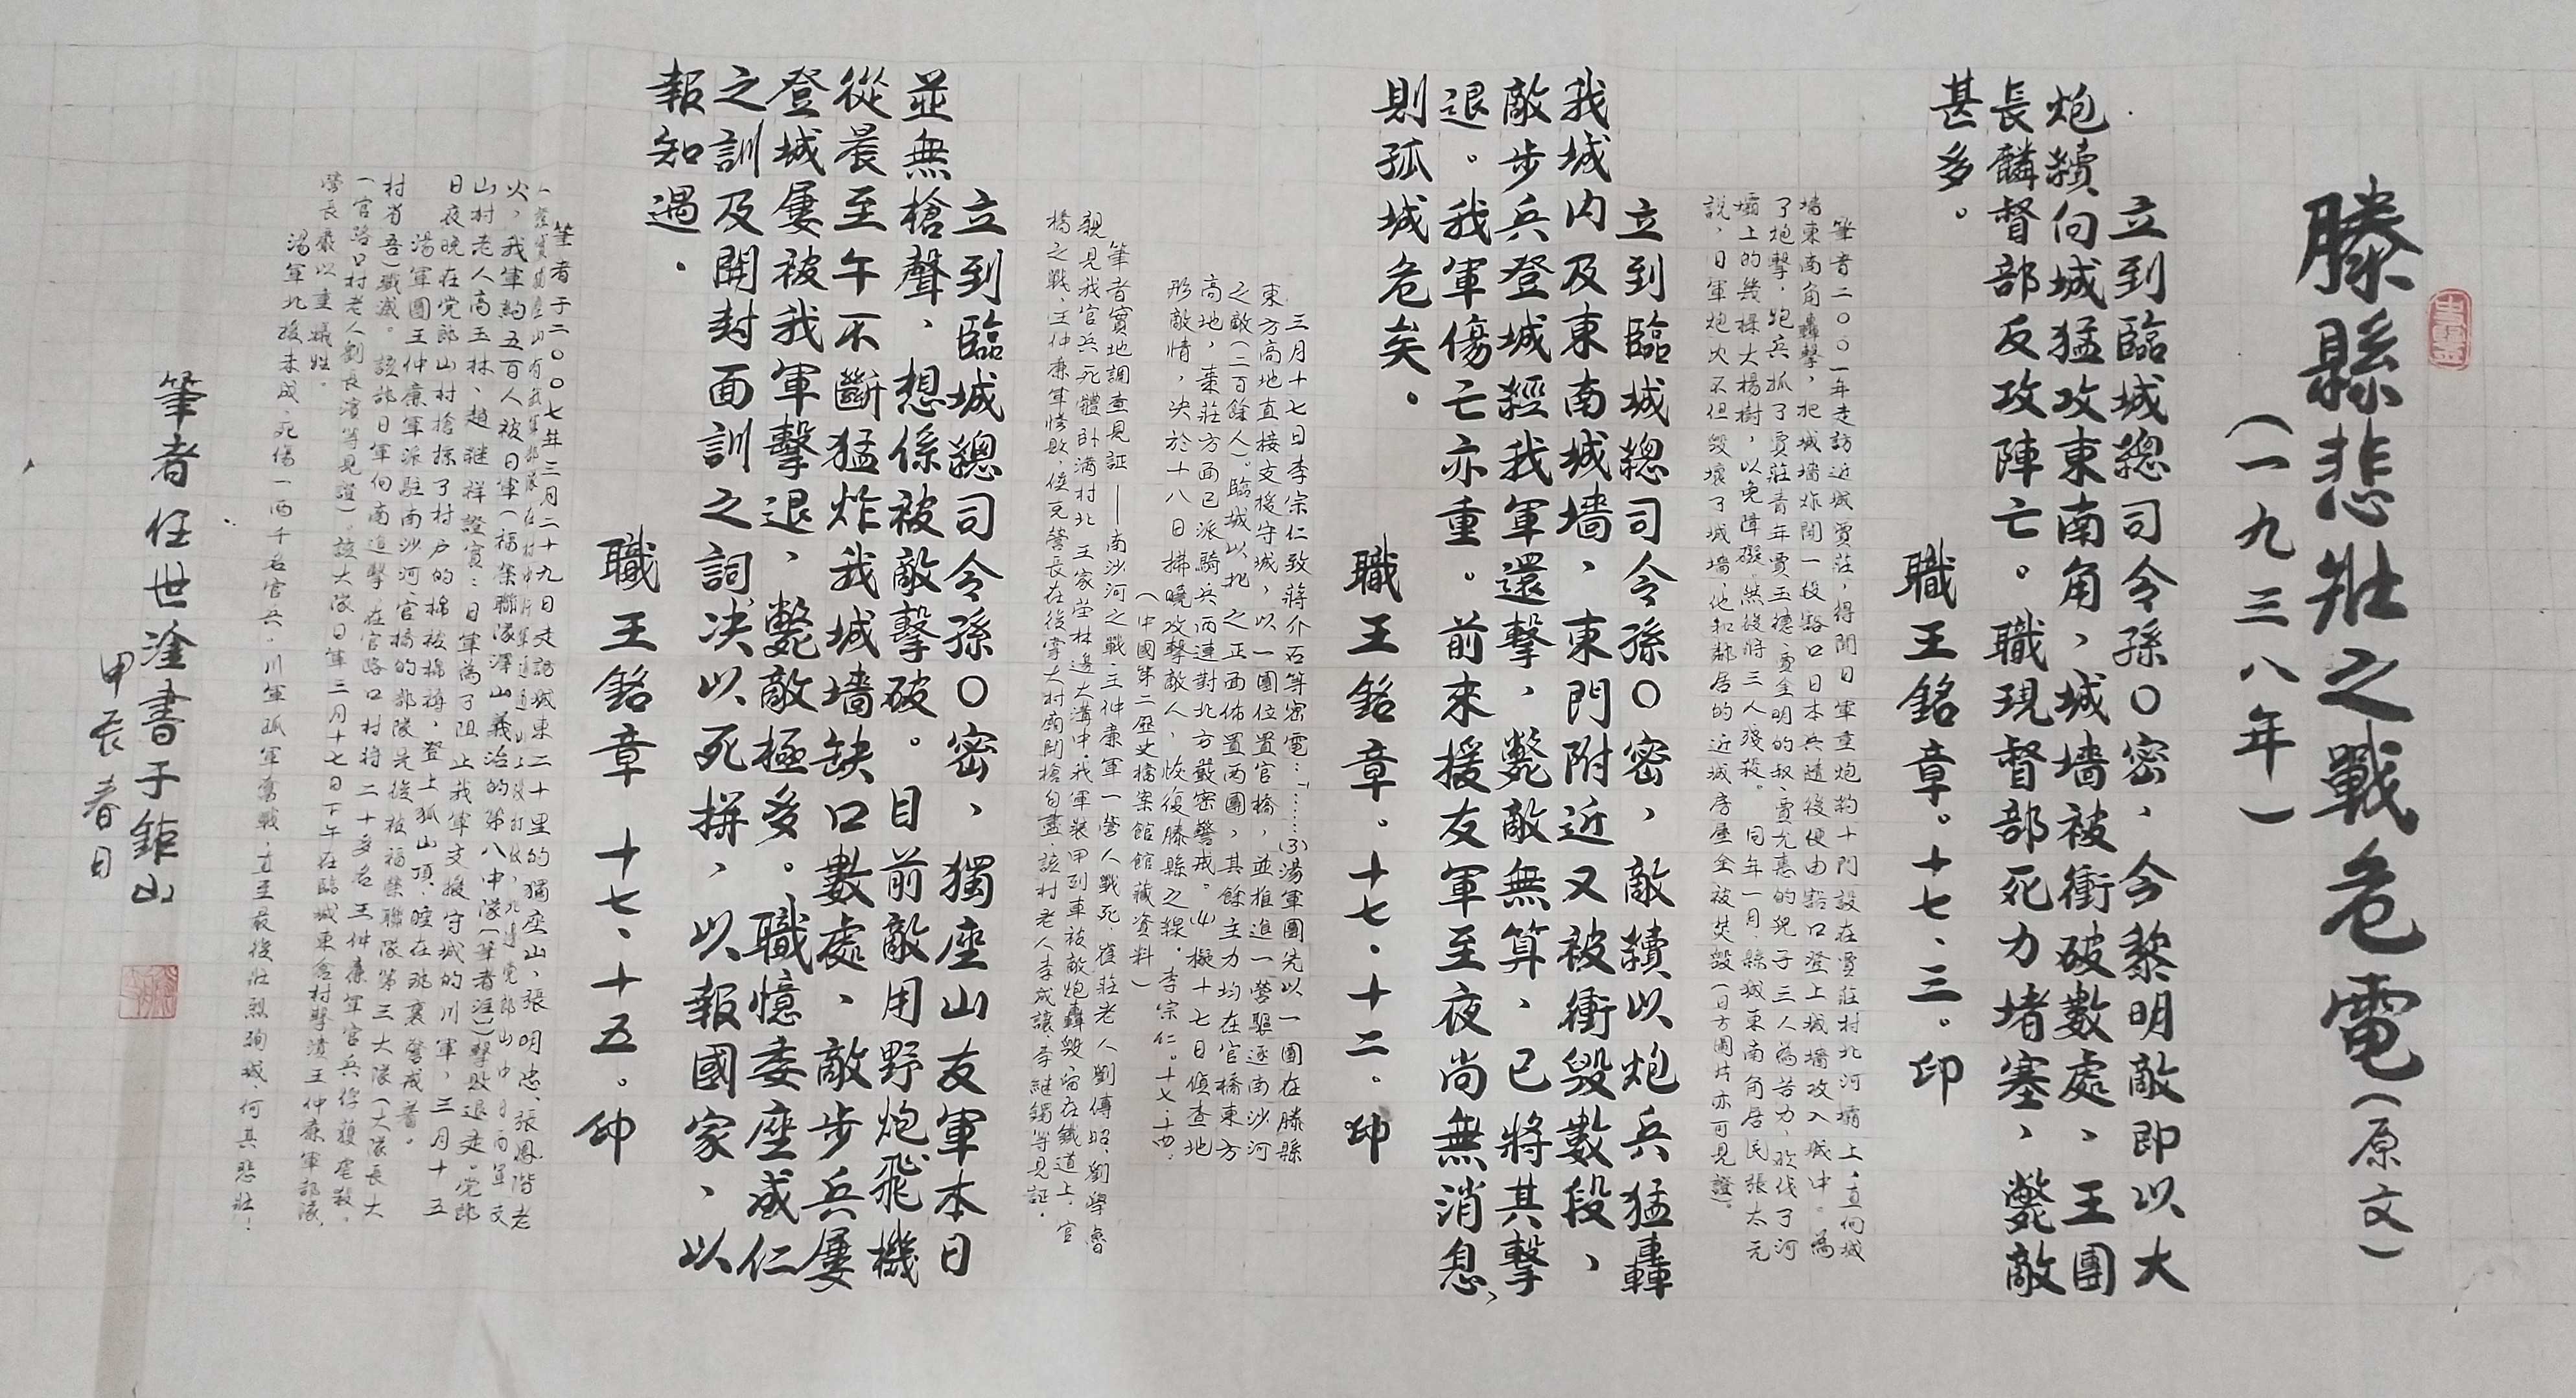 滕縣悲壯之戰危電(原文)
(一九三八年)
立到臨城總司令孫〇密、今黎明敵即以大
炮續向城猛攻東南角、城墻被衝破數處、王團
長麟督部反攻陣亡。職現督部死力堵塞、斃敵
甚多。
職王銘章。十七、三。印
筆者二〇〇一年走訪近城賈莊,得聞日軍重炮約十門設在賈莊村北河壩上,直向城
墻東南角轟擊,把城墻炸開一段豁口日本兵隨後便由豁口登上城墻攻入城中。為
了炮擊,炮兵抓了賈莊青年賈玉德、賈金明的叔、賈尤惠的兒子三人為苦力、砍伐了河
壩上的幾棵大楊樹,以免障礙,然後將三人殘殺。同年一月、縣城東南角居民張太元
說,日軍炮火不但毀壞了城墻,他和鄰居的近城房屋全被焚毀(日方圖片亦可見證)。
立到臨城總司令孫〇密,敵續以炮兵猛轟
我城內及東南城墻、東門附近又被衝毀數段、
敵步兵登城經我軍還擊,斃敵無算、已將其擊
退。我軍傷亡亦重。前來援友軍至夜尚無消息、
則孤城危矣。
職王銘章。十七、十二。印
三月十七日李宗仁致蔣介石等密電:「……(3)湯軍團先以一團在滕縣
東方高地直接支援守城,以一團位置官橋,並推進一營驅逐南沙河
之敵(二百餘人)。臨城以北之正面佈置兩團,其餘主力均在官橋東方
高地,棗莊方面已派騎兵兩連對北方嚴密警戒。(4)擬十七日偵查地
形敵情,決於十八日拂曉攻擊敵人,恢復滕縣之線。李宗仁。十七、十四。
(中國第二歷史檔案館館藏資料)
筆者實地調查見証——南沙河之戰、王仲廉軍一營人戰死、崔莊老人劉傳昭、劉學魯
親見我官兵死體卧滿村北王家塋林邊大溝中、我軍裝甲列車被敵炮轟毀、宿在鐵道上、官
橋之戰、王仲廉軍慘敗、侯克營長在後掌大村廟開槍自盡、該村老人李成讓、李繼鐲等見証。
立到臨城總司令孫〇密、獨座山友軍本日
並無槍聲、想係被敵擊破。目前敵用野炮飛機
從晨至午不斷猛炸我城墻缺口數處、敵步兵屢
登城屢被我軍擊退、斃敵極多。職憶委座成仁
之訓及開封面訓之詞,決以死拼、以報國家、以
報知遇。
職王銘章 十七、十五。印
筆者于二〇〇七年三月二十九日走訪城東二十里的獨座山、張明忠、張鳳階老
火,我軍約五百人被日軍(福榮聯隊澤山義治的第八中隊(筆者注))擊敗退走。党郎
山村老人高玉林、趙繼祥證實:日軍為了阻止我軍支援守城的川軍,三月十五
日夜晚在党郎山村搶掠了村户的棉被棉褥,登上狐山頂、睡在被裏警戒着。
湯軍團王仲廉軍派駐南沙河、官橋的部隊先後被福榮聯隊第三大隊(大隊長大
村省吾)殲滅。該部日軍向南追擊、在官路口村將二十多名王仲廉軍官兵俘獲虐殺。
(官路口村老人劉長濱等見證)。該大隊日軍三月十七日下午在臨城東食村擊潰王仲廉軍部隊,
營長嚴以重犧牲。
湯軍北援未成、死傷一兩千名官兵、川軍孤軍奮戰、直至最後壯烈殉城、何其悲壯!
筆者任世淦書于鉅山
甲辰春日